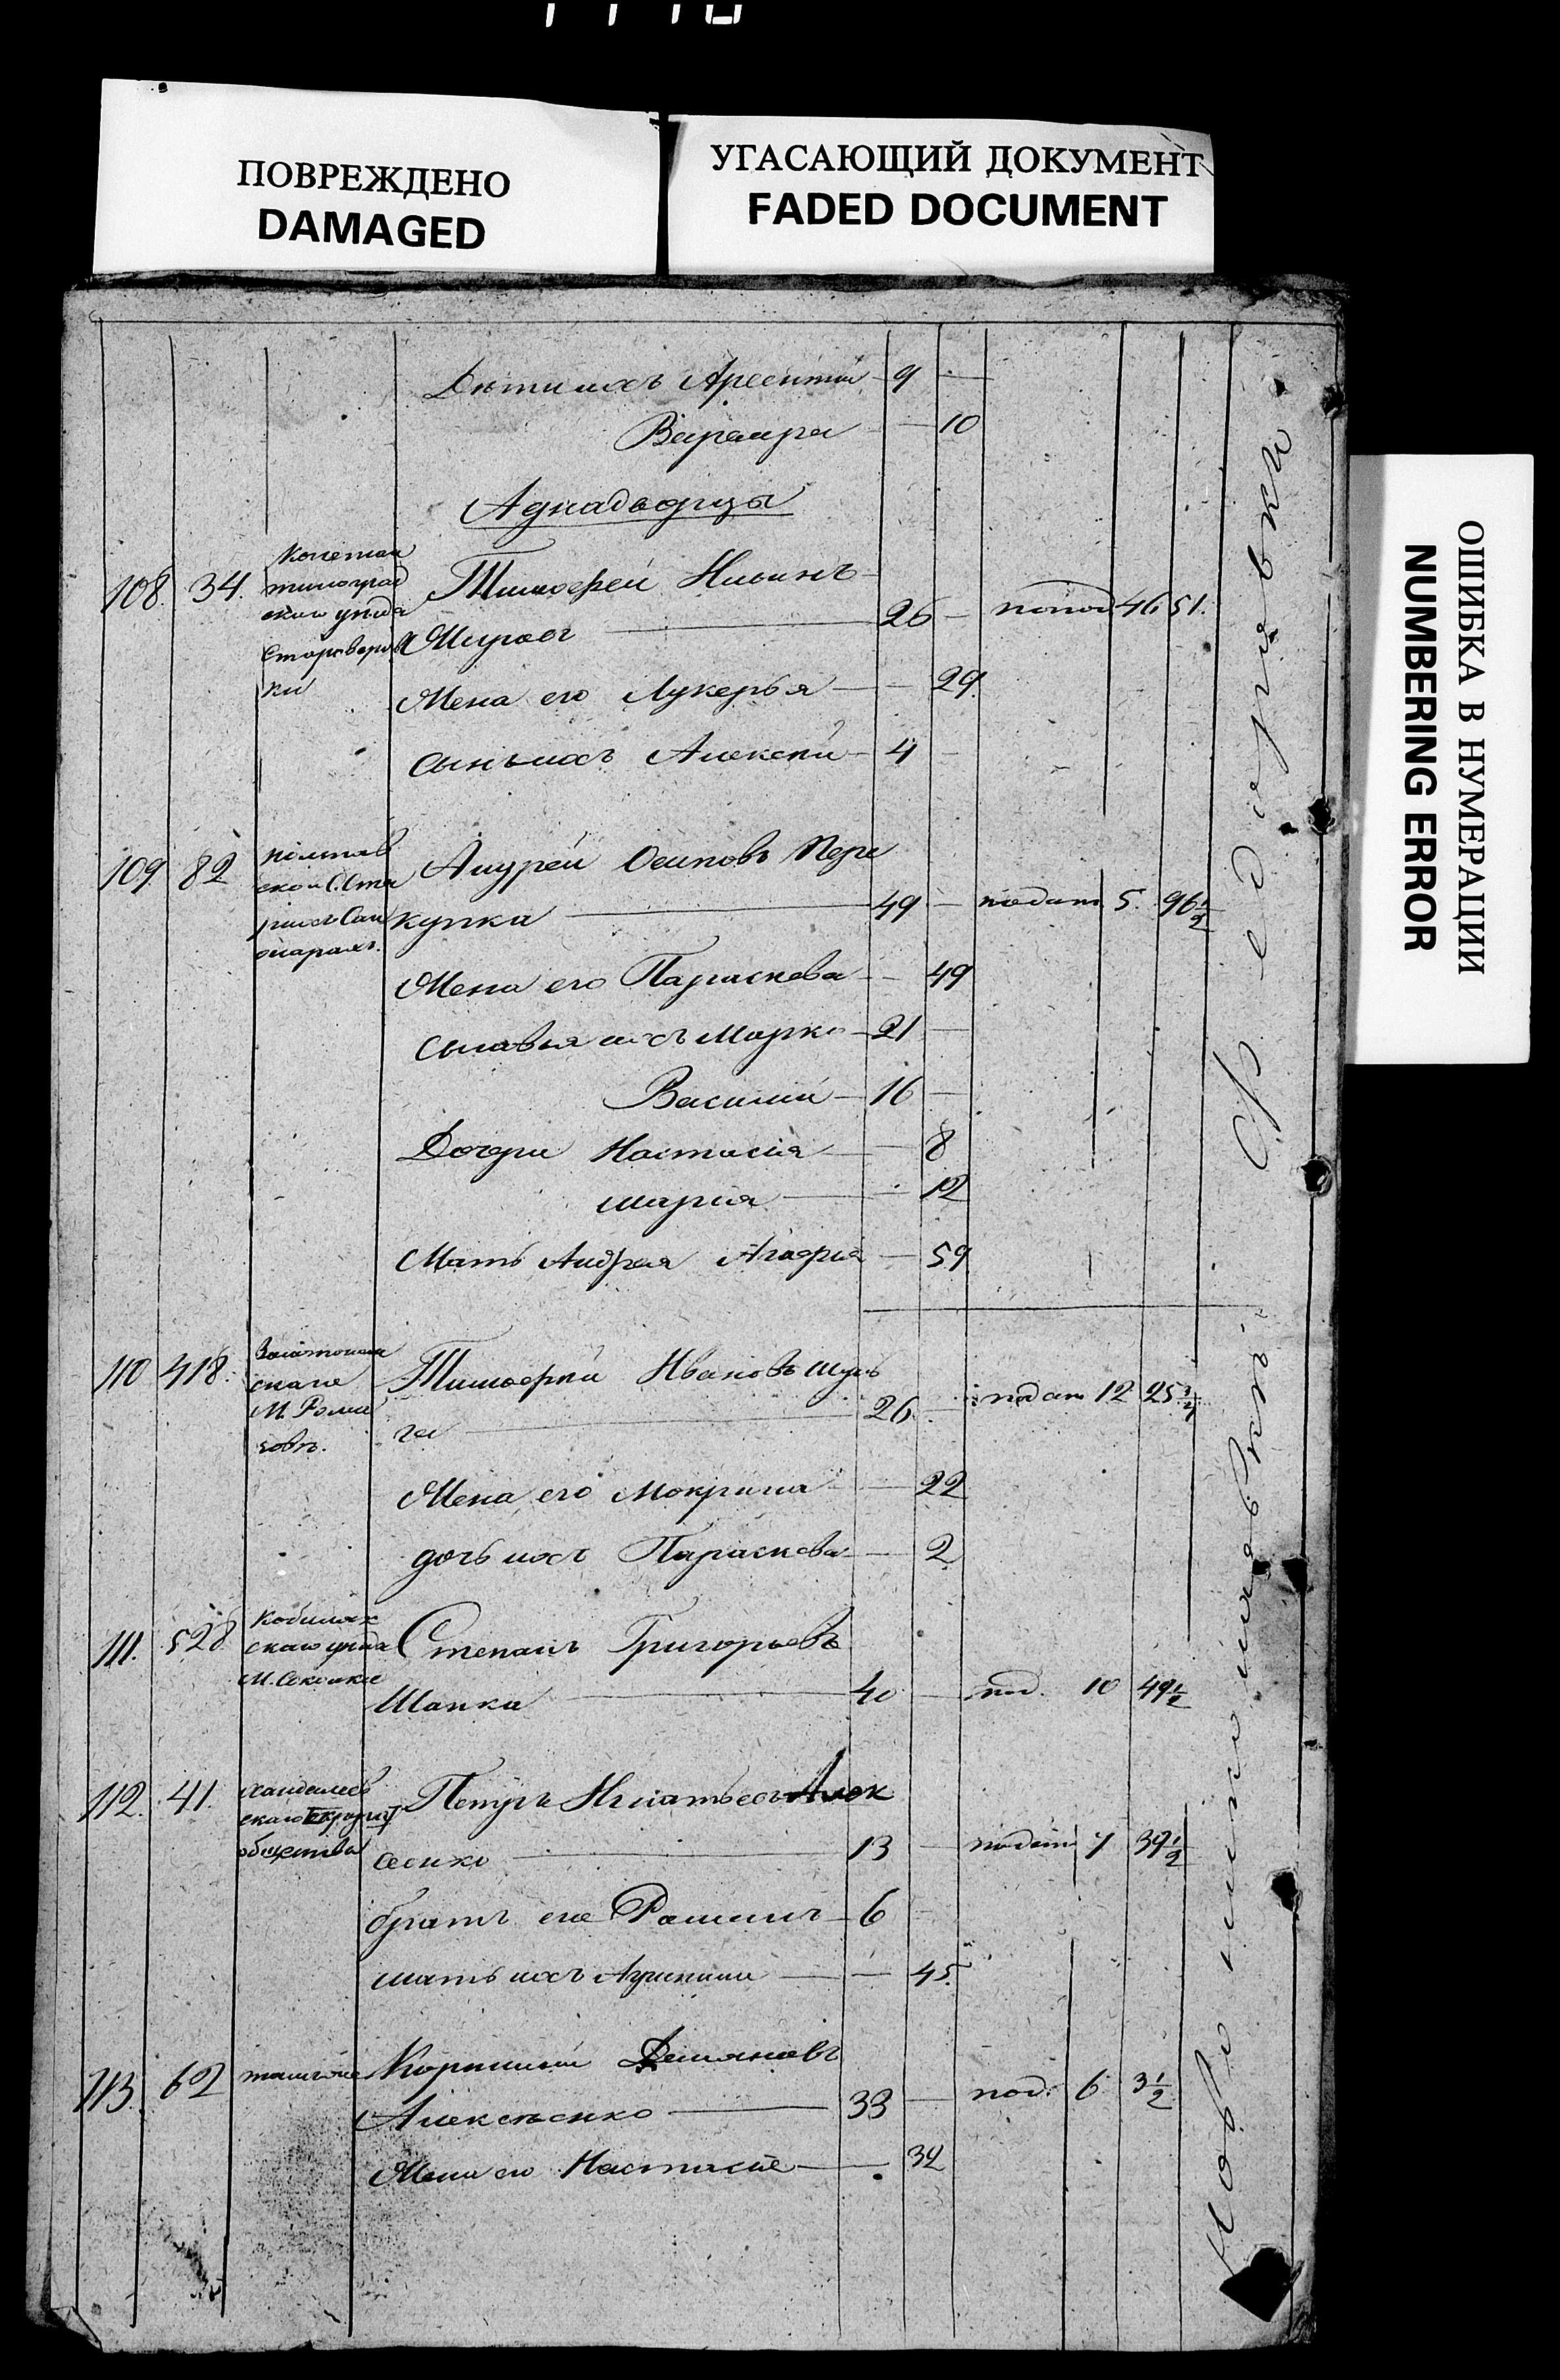 ПОВРЕЖДЕНО
DAMAGED
УГАСАЮЩИЙ ДОКУМЕНТ
FADED DOCUMENT
ОШИБКА В НУМЕРАЦИИ
NUMBERING ERROR
Дети ихъ Арсентий 9 —
Варвара — 10
Аднадворцы
108. 34. Констан
тиноград
скаго уезда
Староверов
ки
Тимофей Ильинъ
26 — 46 51.
Жена его Лукерья — 29
Сынъ ихъ Алексей 4 —
109. 82 Полтав
ской
Андрей Осиповъ Пере
купка 49 — подат 5. 96 1/2
Жена его Параскева — 49
Сыновья ихъ Марко 21 —
Василий 16 —
Дочери Настасия — 8
Мария — 12
Мать Андрея Агафия — 59
110 418.
Тимофей Ивановъ
26. — подат 12 25 1/4
Жена его Мокрина — 22
дочь ихъ Параскева — 2
111. 528 Кобиляк
скаго уезда
М. Соколки
Степанъ Григорьевъ
Шапка 40 — под. 10 49 1/2
112. 41.
скаго
общества
Петръ Игнатьевъ Алек
сеенко 13 — подат 7 39 1/2
братъ его 6 —
мать ихъ — 45
113. 62
Корнилий Демяновъ
Алексеенко 33 — под. 6 3 1/2
Жена его Настасия — 32